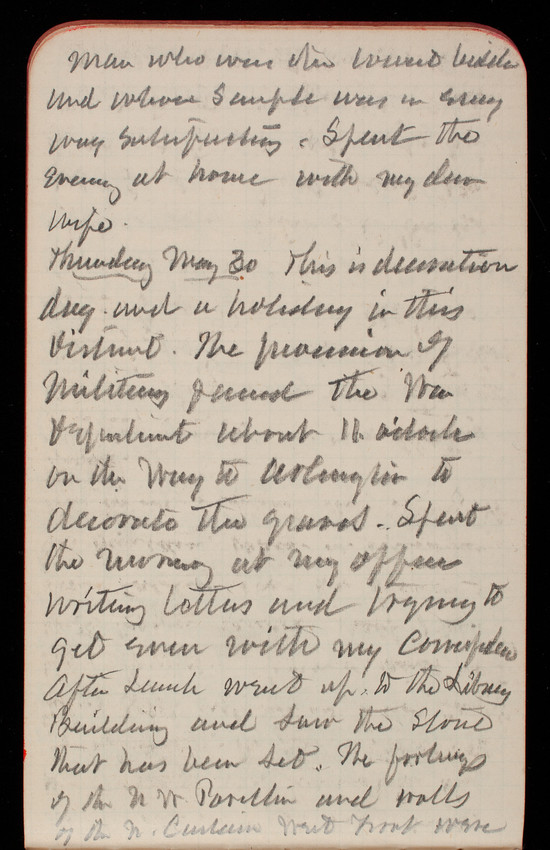 man who was the lowest bidder
and whose sample was in every
way satisfactory. Spent the
Evening at home with my dear
wife.
Thursday May 30 This is decoration
day and a holiday in this
District. The procession of
Military passed the War
Department about 11 o'clock
on the way to Arlington to
decorate the graves. Spent
the morning at my office
writing letters and trying to
get even with my
After Lunch went up to the Library
Building and saw the stone
that has been set. The footings
of the N W Pavillin and walls
of the N. Curtain West front were